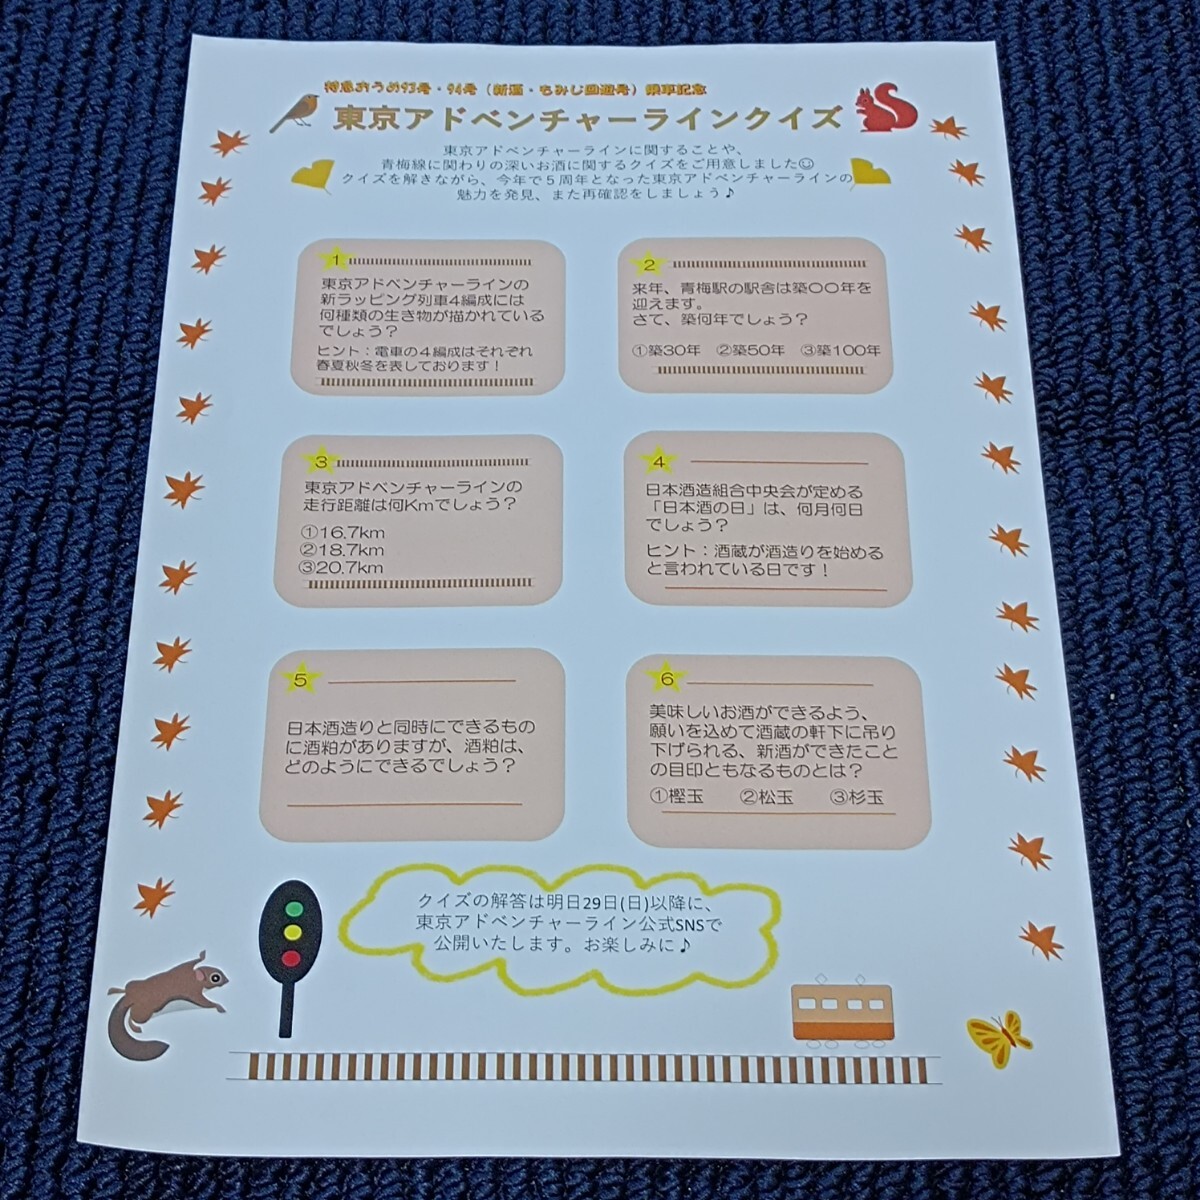 特急おうめ93号・94号（新酒・もみじ回遊号）乗車記念
東京アドベンチャーラインクイズ
東京アドベンチャーラインに関することや、
青梅線に関わりの深いお酒に関するクイズをご用意しました☺
クイズを解きながら、今年で５周年となった東京アドベンチャーラインの
魅力を発見、また再確認をしましょう♪
1
東京アドベンチャーラインの
新ラッピング列車4編成には
何種類の生き物が描かれている
でしょう？
ヒント：電車の４編成はそれぞれ
春夏秋冬を表しております！
2
来年、青梅駅の駅舎は築〇〇年を
迎えます。
さて、築何年でしょう？
①築30年　②築50年　③築100年
3
東京アドベンチャーラインの
走行距離は何Kmでしょう？
①16.7km
②18.7km
③20.7km
4
日本酒造組合中央会が定める
「日本酒の日」は、何月何日
でしょう？
ヒント：酒蔵が酒造りを始める
と言われている日です！
5
日本酒造りと同時にできるもの
に酒粕がありますが、酒粕は、
どのようにできるでしょう？
6
美味しいお酒ができるよう、
願いを込めて酒蔵の軒下に吊り
下げられる、新酒ができたこと
の目印ともなるものとは？
①樫玉　②松玉　③杉玉
クイズの解答は明日29日(日)以降に、
東京アドベンチャーライン公式SNSで
公開いたします。お楽しみに♪